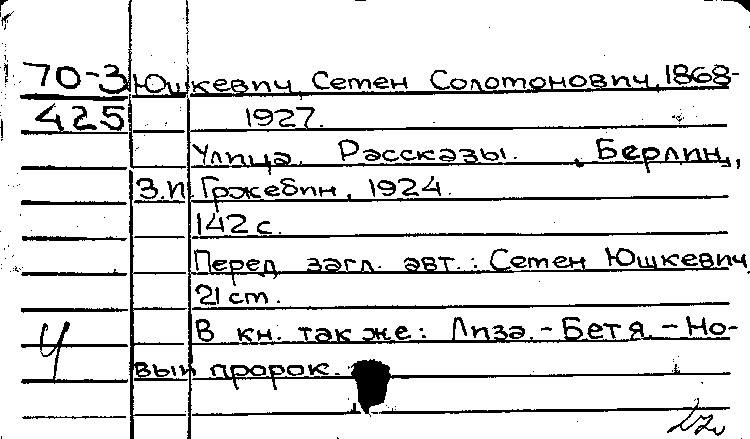 70-3 Юшкевич, Семен Соломонович, 1868-
425 1927.
Улица. Рассказы. , Берлин,
З.И. Гржебин, 1924.
142 с.
Перед загл. авт.: Семен Юшкевич
21 cm.
Ч В кн. также: Лиза. - Бетя. - Но-
вый пророк.